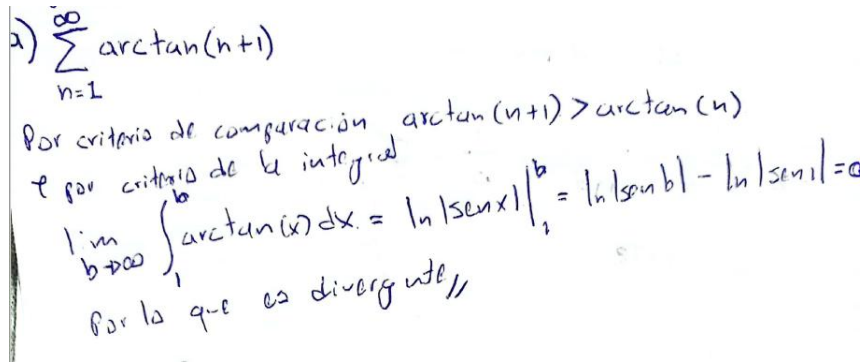 a) ∞∑n=1 arctan(n+1)
Por criterio de comparación arctan(n+1) > arctan(n)
por criterio de la integral
lim b→∞ ∫₁ᵇ arctan(x) dx = ln|senx| |₁ᵇ = ln|sen b| - ln|sen 1| =
Por lo que es divergente //